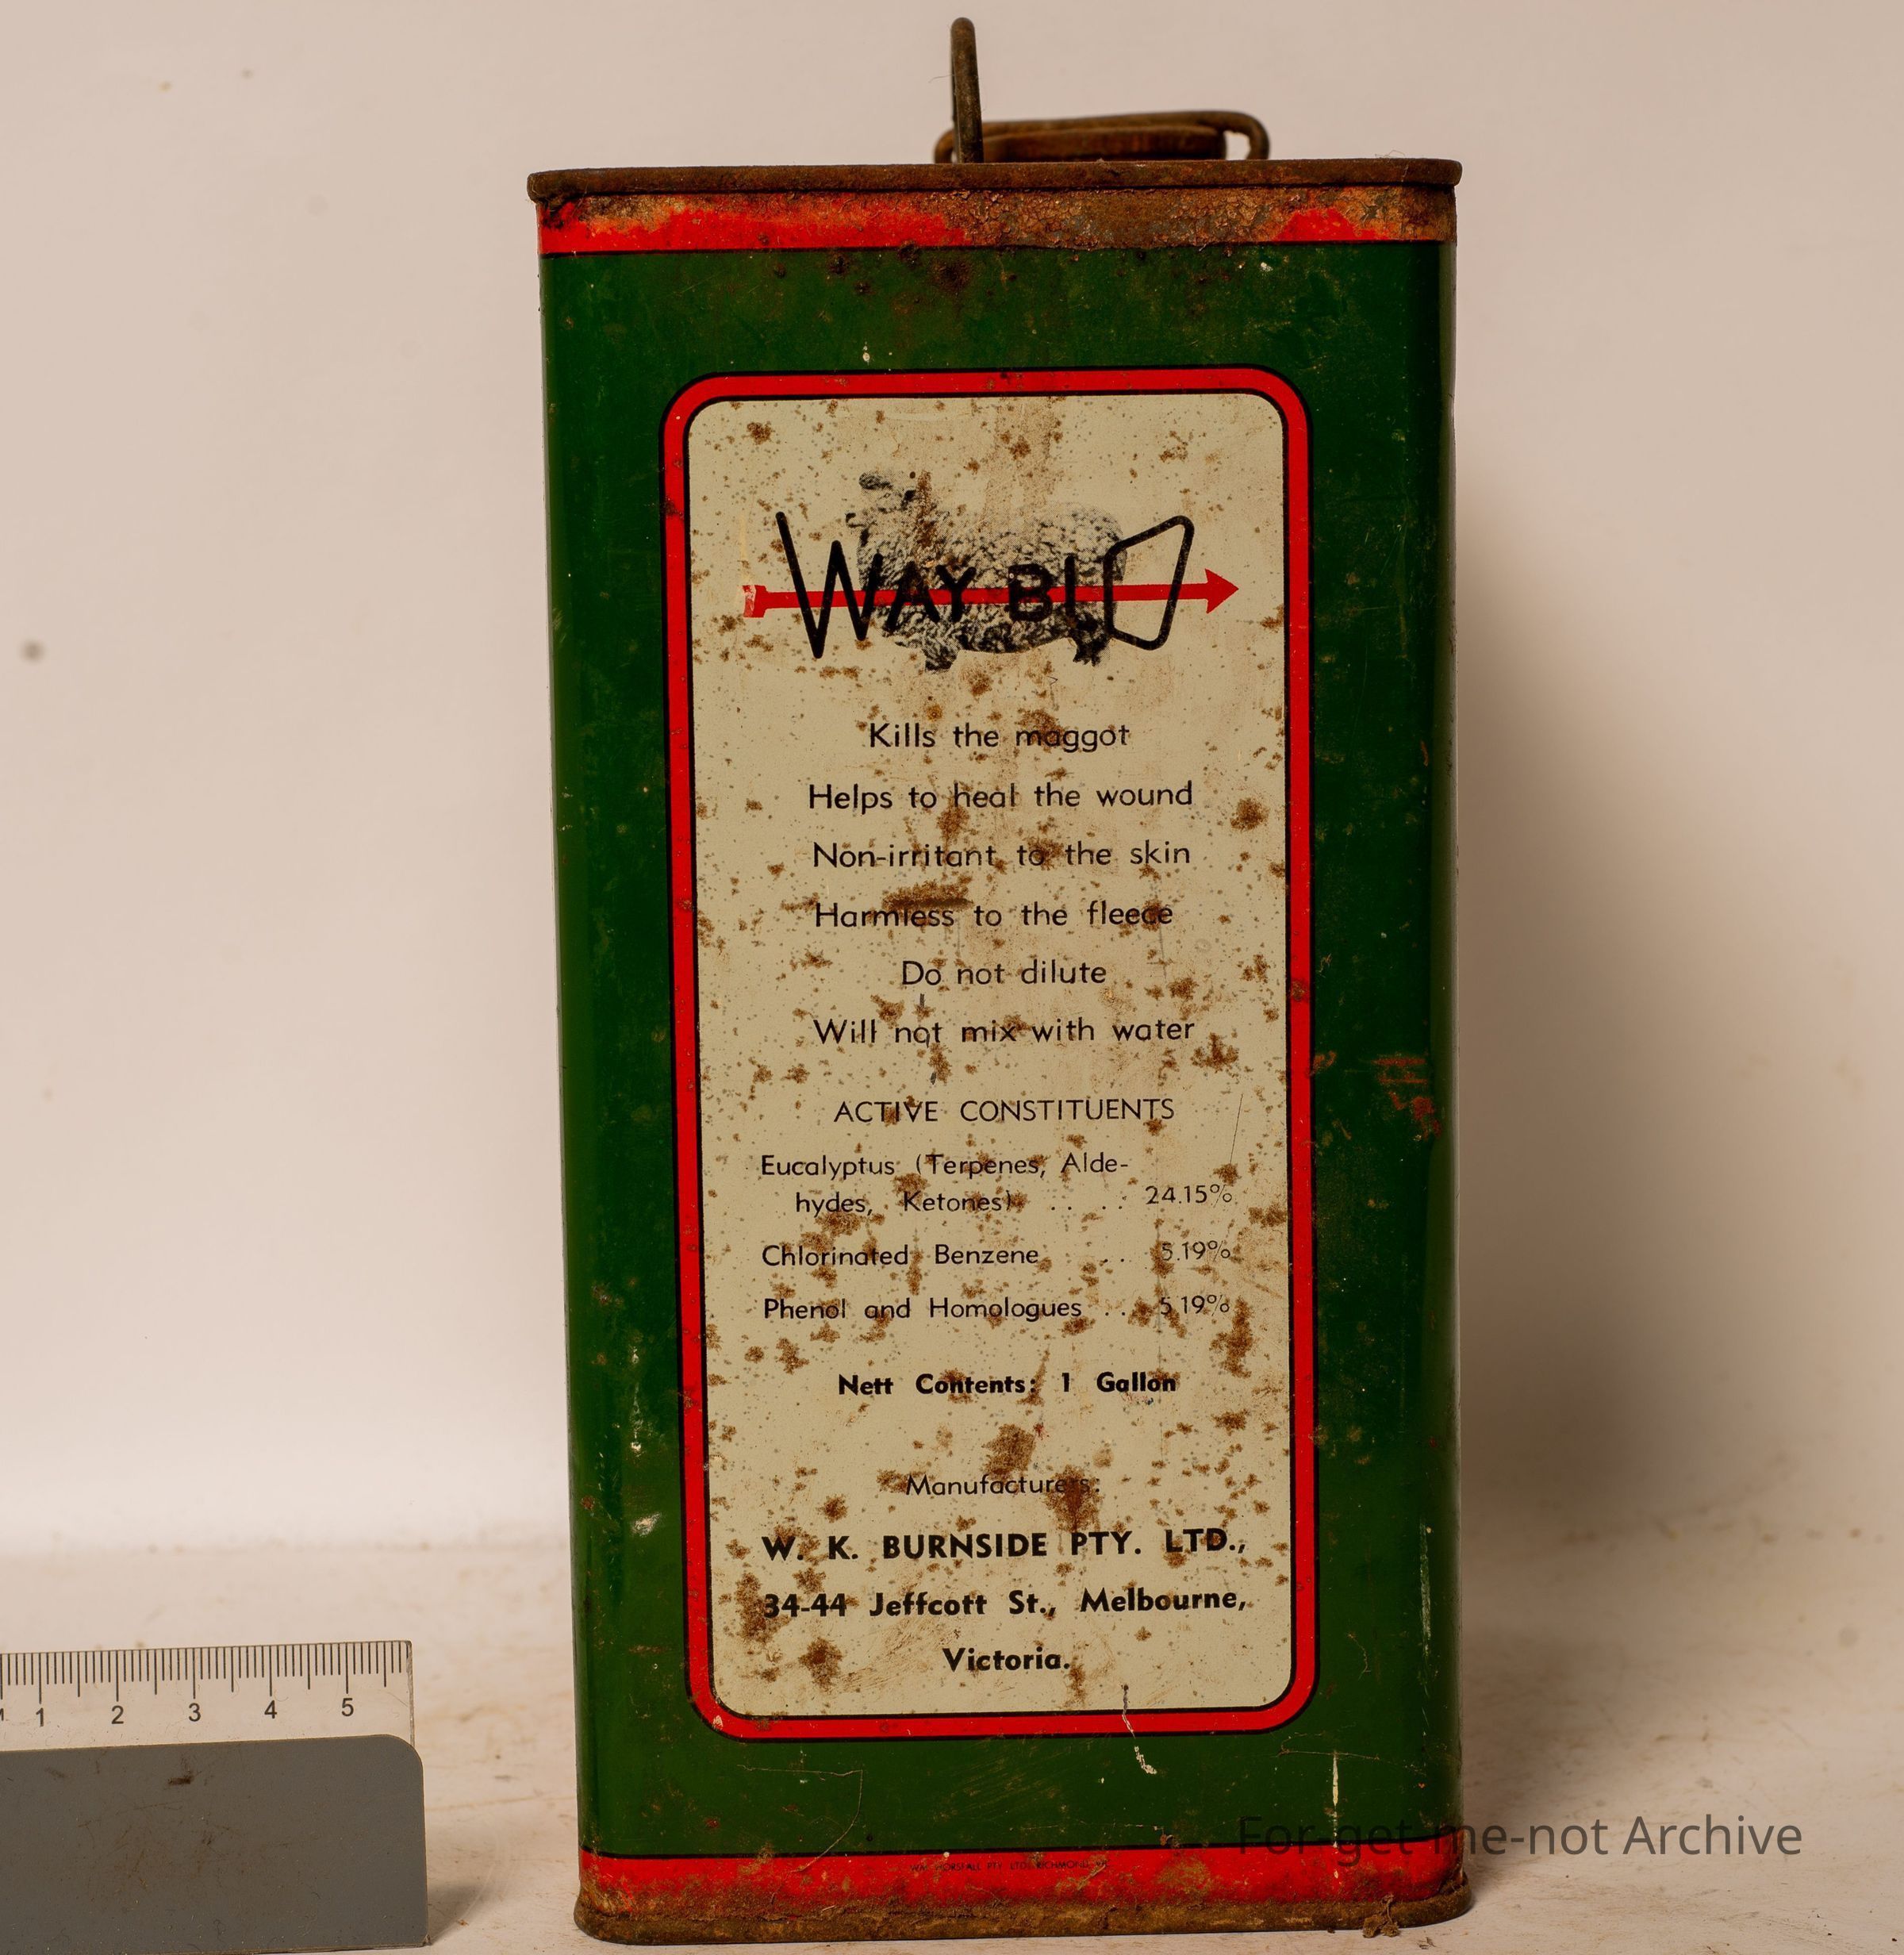 WAY BIO
Kills the maggot
Helps to heal the wound
Non-irritant to the skin
Harmless to the fleece
Do not dilute
Will not mix with water
ACTIVE CONSTITUENTS
Eucalyptus (Terpenes, Alde-
hydes, Ketones) .. .. 24.15%
Chlorinated Benzene .. 5.19%
Phenol and Homologues .. 5.19%
Nett Contents: 1 Gallon
Manufacturers:
W. K. BURNSIDE PTY. LTD.,
34-44 Jeffcott St., Melbourne,
Victoria.
1 2 3 4 5
For-get-me-not Archive
PTY. LTD. RICHMOND